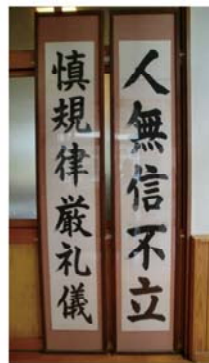 人無信不立
慎規律厳礼儀